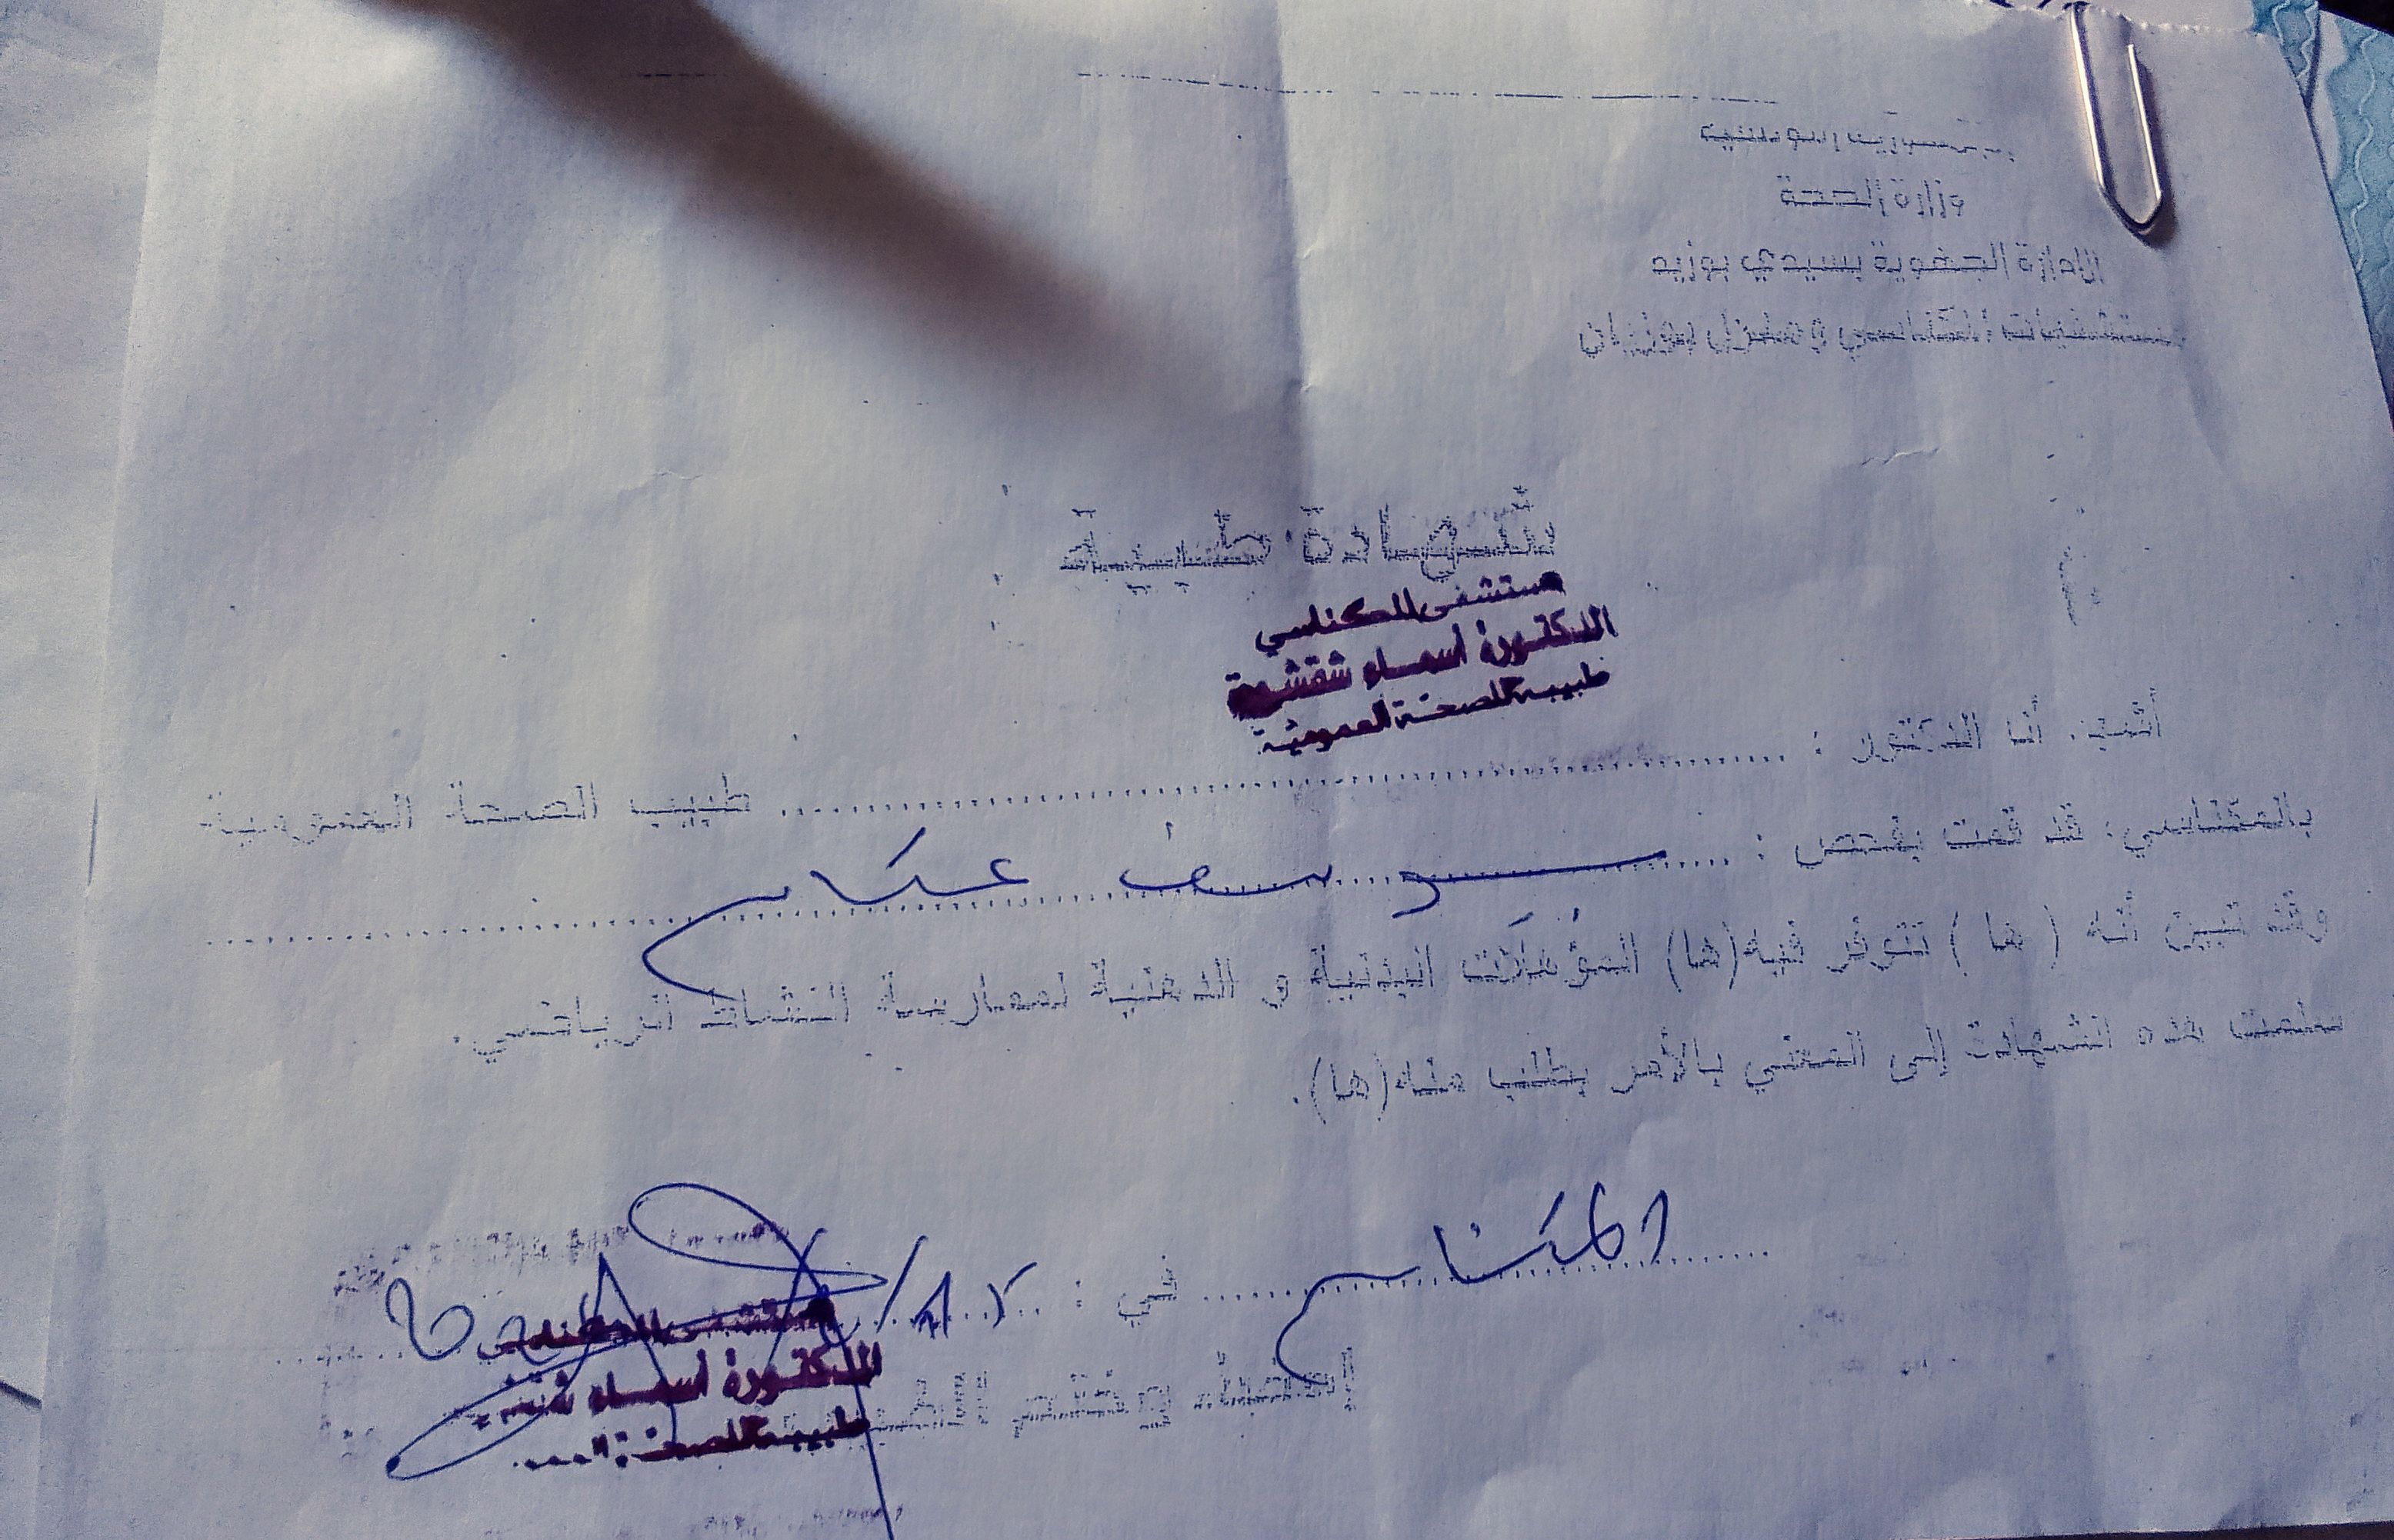 وزارة الصحة
الإدارة الجهوية بسيدي بوزيد
مستشفيات المكناسي ومنزل بوزيان
شهادة طبية
مستشفى المكناسي
الدكتورة أسماء
طبيبة للصحة العمومية
أشهد، أنا الدكتور : طبيب الصحة العمومية
بالمكناسي، قد قمت بفحص : يوسف
وقد تبين أنه ( ها ) تتوفر فيه(ها) المؤهلات البدنية و الذهنية لممارسة النشاط الرياضي.
سلمت هذه الشهادة إلى المعني بالأمر بطلب منه(ها).
المكناسي في :
إمضاء وختم
الدكتورة أسماء
طبيبة للصحة